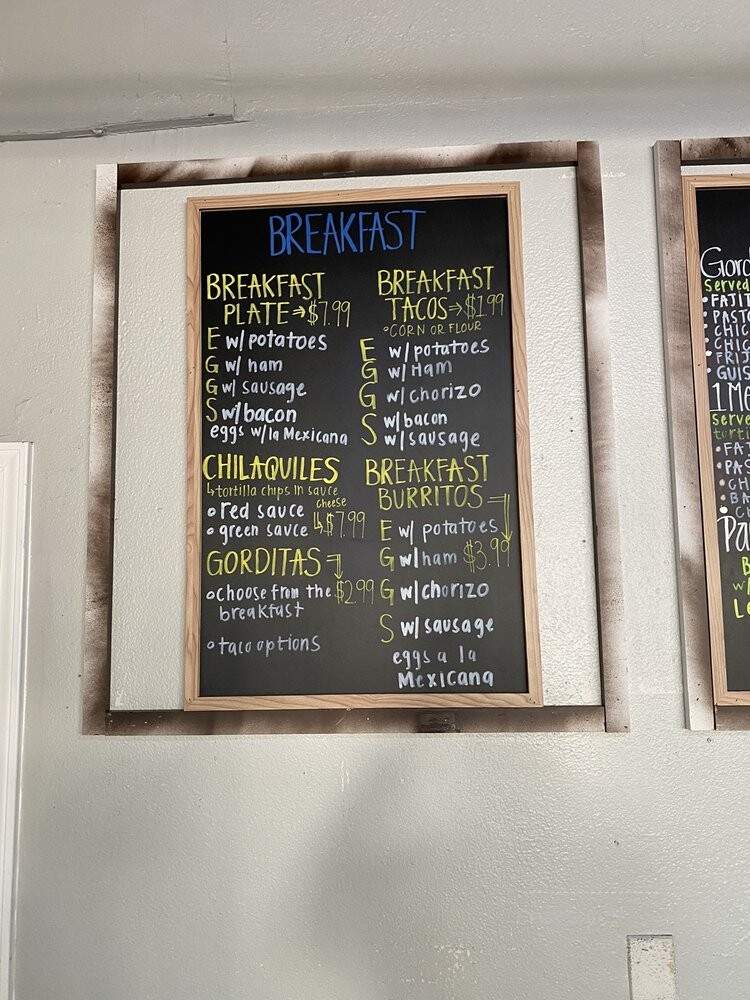 BREAKFAST
BREAKFAST
PLATE → $7.99
E w/ potatoes
G w/ ham
G w/ sausage
S w/ bacon
eggs w/ la Mexicana
CHILAQUILES
↳ tortilla chips in sauce
cheese
• red sauce
• green sauce ↳ $7.99
GORDITAS
• choose from the $2.99
breakfast
• taco options
BREAKFAST
TACOS → $1.99
• CORN OR FLOUR
E w/ potatoes
G w/ Ham
G w/ chorizo
w/ bacon
S w/ sausage
BREAKFAST
BURRITOS
E w/ potatoes
G w/ ham $3.99
G w/ chorizo
S w/ sausage
eggs a la
Mexicana
Served
• PAST
• CHIC
• CHIC
• GUIS